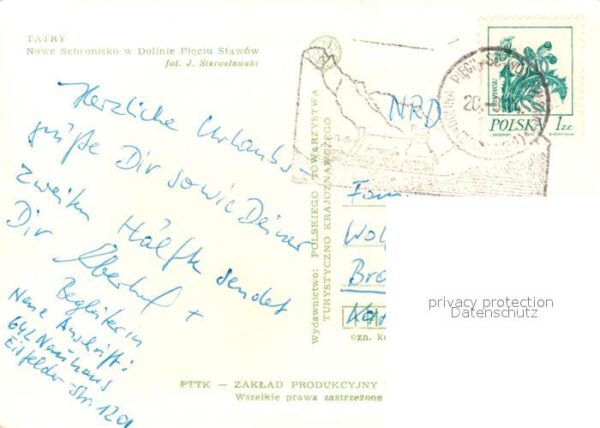 TATRY
Nowe Schronisko w Dolinie Pięciu Stawów
fot. J. Sierosławski
Herzliche Urlaubs-
grüße Dir sowie Deiner
zweiten Hälfte sendet
Dir Eberhard +
Begleiterin
Neue Anschrift:
642 Neuhaus
Eisfelder-Str. 120a
Wydawnictwo: POLSKIEGO TOWARZYSTWA
TURYSTYCZNO KRAJOZNAWCZEGO
PTTK — ZAKŁAD PRODUKCYJNY
Wszelkie prawa zastrzeżone
NRD
Fam
Wol
Bra
ozn. k
20.
POLSKA 1zł
privacy protection
Datenschutz